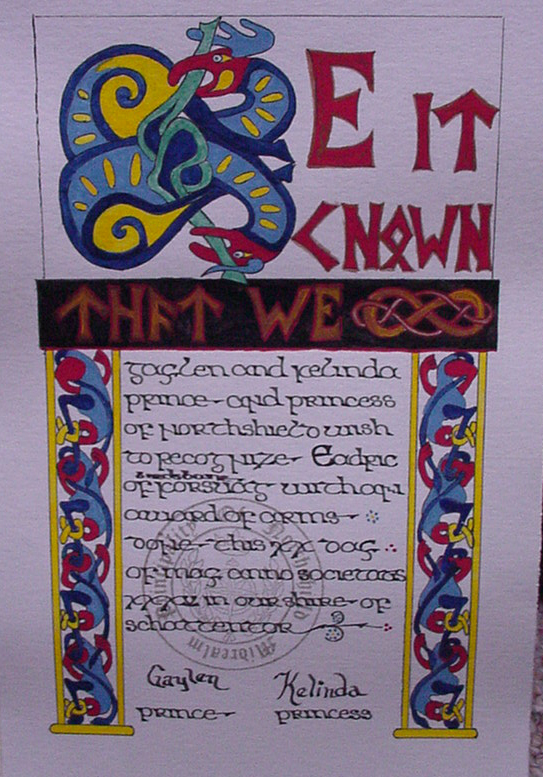 BE IT
CNOWN
THAT WE
Gaylen and Kelinda
prince and princess
of northshield wish
to recognize Eadric
of with an
award of arms
done this XX day
of may anno societatis
in our shire of
schattentor
Gaylen Kelinda
prince princess
Principality Of Northshield
Midrealm